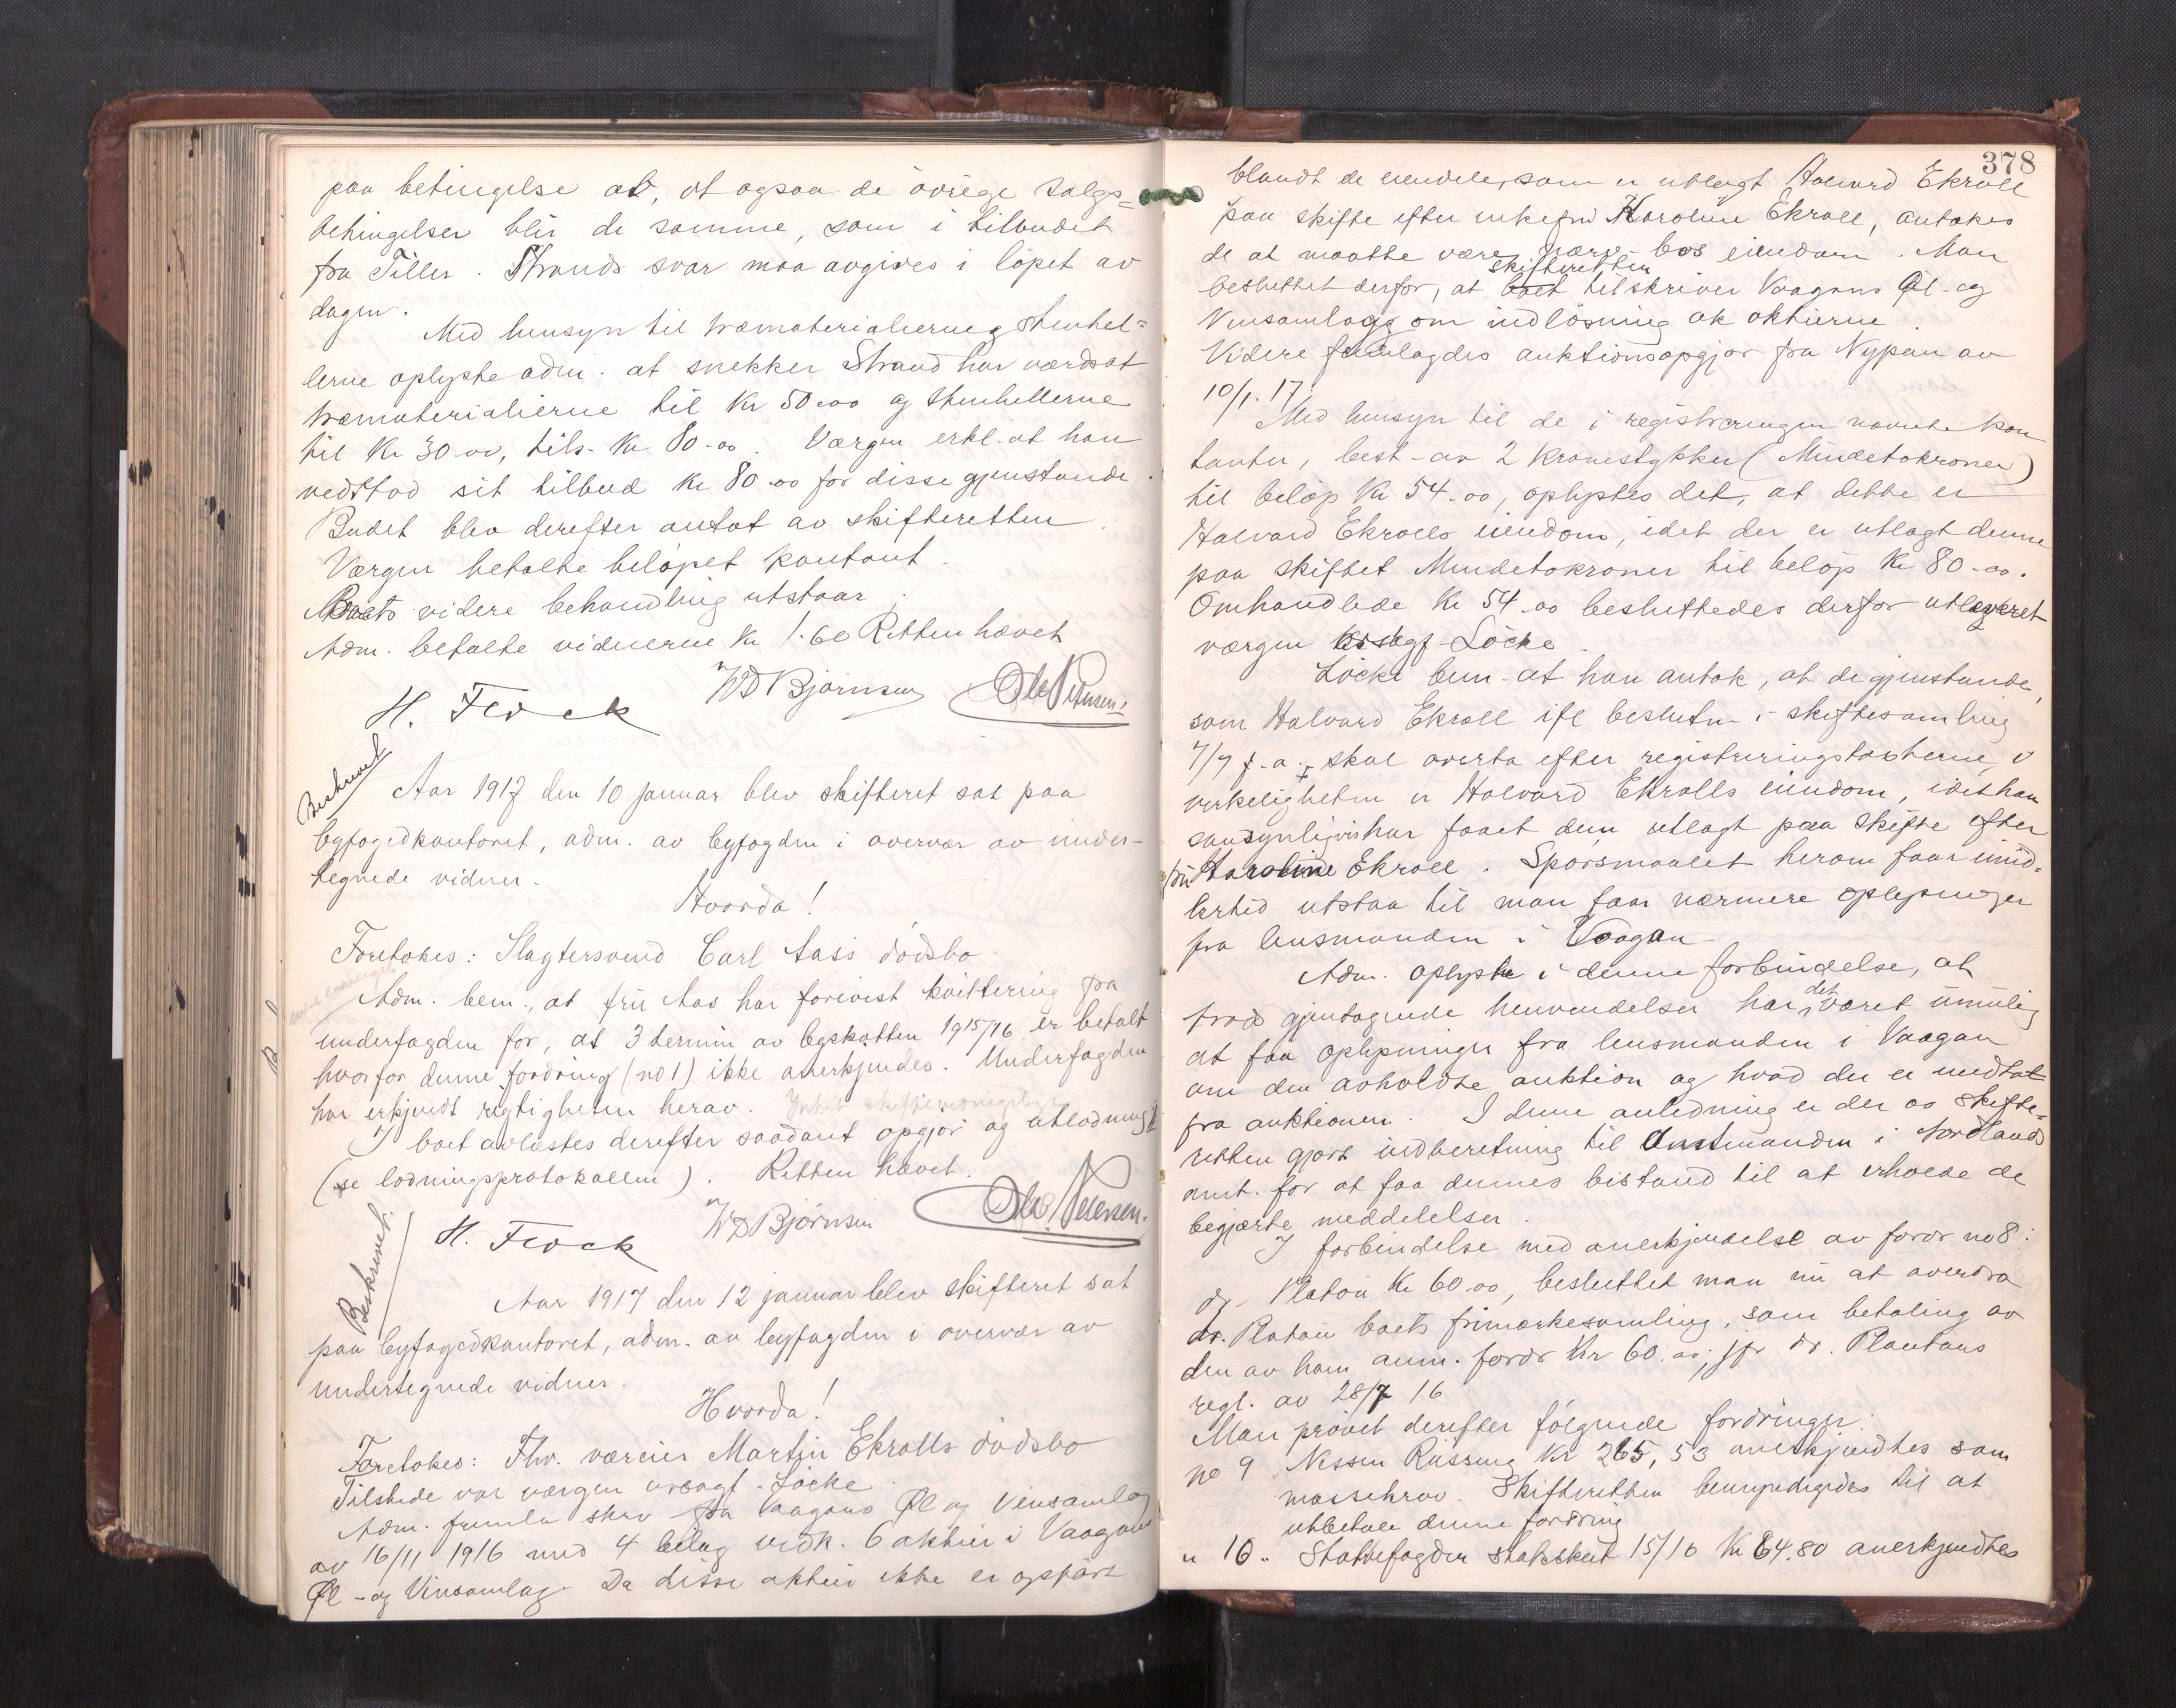 paa betingelse at, at ogsaa de øvrige salgs=
betingelser blir de samme, som i tilbudet
fra Tiller. Strands svar maa avgives i löpet av
dagen.
Med hensyn til træmaterialierne og stenhel=
lerne oplyste adm. at snekker Strand har værdsat
træmaterialierne til Kr 50.00 og stenhellerne
til Kr 30.00, tils. Kr 80.00. Værgen erkl. at han
vedstod sit tilbud Kr 80.00 for disse gjenstande.
Budet blev derefter antat av skifteretten.
Værgen betalte beløpet kontant.
Boets videre behandling utstaar.
Adm. betalte vidnerne Kr 1.60 Retten hævet
H. Flock WD Bjørnsen Ole Petersen.
Beskrevet
Aar 1917 den 10 januar blev skifteret sat paa
byfogedkontoret, adm. av byfogden i overvær av under-
tegnede vidner.
Hvorda!
Foretokes: Slagtersvend Carl Aass dödsbo.
Adm. bem., at fru Aas har forevist kvittering fra
underfogden for, at 3 termin av byskatten 1915/16 er betalt
hvorfor denne fordring (no 1) ikke anerkjendes. Underfogden
har erkjendt rigtigheten herav.
I boet avlæstes derefter saadant opgjör og utlodning
(se lodningsprotokollen). Retten hævet.
H. Flock WD Bjørnsen Ole Petersen.
Beskrevet.
Aar 1917 den 12 januar blev skifteret sat
paa byfogedkontoret, adm. av byfogden i overvær av
undertegnede vidner.
Hvorda!
Foretokes: Fhv. væreier Martin Ekrolls dödsbo
Tilstede var værgen orsagf. Löcke.
Adm. fremla skriv fra Vaagans Øl og Vinsamlag
av 16/11 1916 med 4 bilag vedk. 6 aktier i Vaagans
Øl- og Vinsamlag. Da disse aktier ikke er opfört
378
blandt de eiendele, som er utlagt Halvard Ekroll
paa skifte efter enkefru Karoline Ekroll, antokes
de at maatte være nærv. bos eiendom. Man
skifteretten
besluttet derfor, at boet tilskriver Vaagans Øl- og
Vinsamlag om indlösning av aktierne.
Videre fremlagdes auktionsopgjör fra Nypan av
10/1.17.
Med hensyn til de i registreringen nævnte kon
tanter, best. av 2 Kronestykker (Mindetokroner)
til beløp Kr 54.00, oplystes det, at dette er
Halvard Ekrolls eiendom, idet der er utlagt denne
paa skiftet Mindetokroner til beløp Kr 80.00.
Omhandlede Kr 54.00 besluttedes derfor utleveret
værgen orsagf. Löcke.
Löcke bem. at han antok, at de gjenstande,
som Halvard Ekroll ifl beslutn. i skiftesamling
7/9 f.a. skal overta efter registreringstaksterne, i
virkeligheten er Halvard Ekrolls eiendom, idet han
sandsynligvis har faaet dem utlagt paa skifte efter
fru Karoline Ekroll. Spørsmaalet herom faar imid=
lertid utstaa til man faar nærmere oplysninger
fra lensmanden i Vaagan.
Adm. oplyste i denne forbindelse, at
det
trods gjentagende henvendelser har været umulig
at faa oplysninger fra lensmanden i Vaagan
om den avholdte auktion og hvad der er medtat
fra auktionen. I denne anledning er der av skifte=
retten gjort indberetning til Amtmanden i Nordlands
amt. for at faa dennes bistand til at erholde de
begjærte meddelelser.
I forbindelse med anerkjendelse av fordr no 8:
dr. Platou Kr 60.00, besluttet man nu at overdra
dr. Platou boets frimærkesamling, som betaling av
den av ham anm. fordr Kr 60.00, jfr dr. Platous
regl. av 28/7 16
Man prövet derefter fölgende fordringer:
No 9 Nissen Kr 265,53 anerkjendtes som
massekrav. Skifteretten bemyndigedes til at
utbetale denne fordring
" 10. Stattsfogden statsskat 15/16 Kr 64.80 anerkjendtes